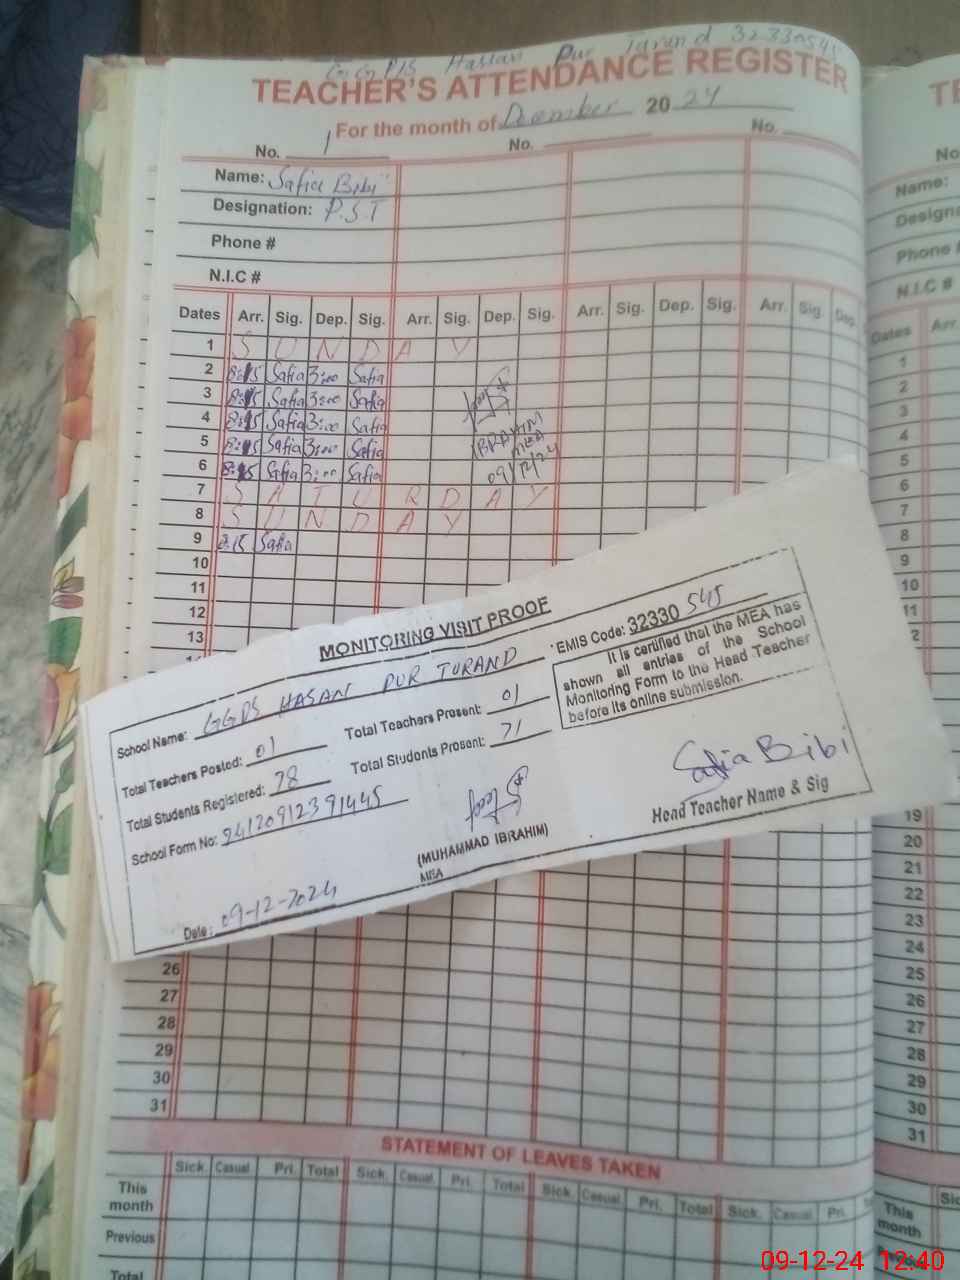 GGPS Hassan Pur Turand 32330545
TEACHER'S ATTENDANCE REGISTER
For the month of December 2024
No. 1 No. No.
Name: Safia Bibi
Designation: P.S.T
Phone #
N.I.C #
Dates Arr. Sig. Dep. Sig. Arr. Sig. Dep. Sig. Arr. Sig. Dep. Sig. Arr. Sig. Dep.
1 S U N D A Y
2 8:15 Safia 3:00 Safia
3 8:15 Safia 3:00 Safia
4 8:15 Safia 3:00 Safia
5 8:15 Safia 3:00 Safia
6 8:15 Safia 3:00 Safia
IBRAHIM
MEA
09/12/24
7 S A T U R D A Y
8 S U N D A Y
9 8:15 Safia
10
11
12
13
MONITORING VISIT PROOF
School Name: GGPS HASAN PUR TURAND EMIS Code: 32330 545
Total Teachers Posted: 01 Total Teachers Present: 01
Total Students Registered: 78 Total Students Present: 71
School Form No: 24120912391445
It is certified that the MEA has
shown all entries of the School
Monitoring Form to the Head Teacher
before its online submission.
Safia Bibi
Head Teacher Name & Sig
(MUHAMMAD IBRAHIM)
MEA
Date: 09-12-2024
26
27
28
29
30
31
STATEMENT OF LEAVES TAKEN
Sick. Casual Pri. Total Sick. Casual Pri. Total Sick. Casual Pri. Total Sick. Casual Pri.
This
month
Previous
Total
TE
No.
Name:
Phone #
N.I.C #
Dates Arr.
1
2
3
4
5
6
7
8
9
10
11
19
20
21
22
23
24
25
26
27
28
29
30
31
This
month
09-12-24 12:40